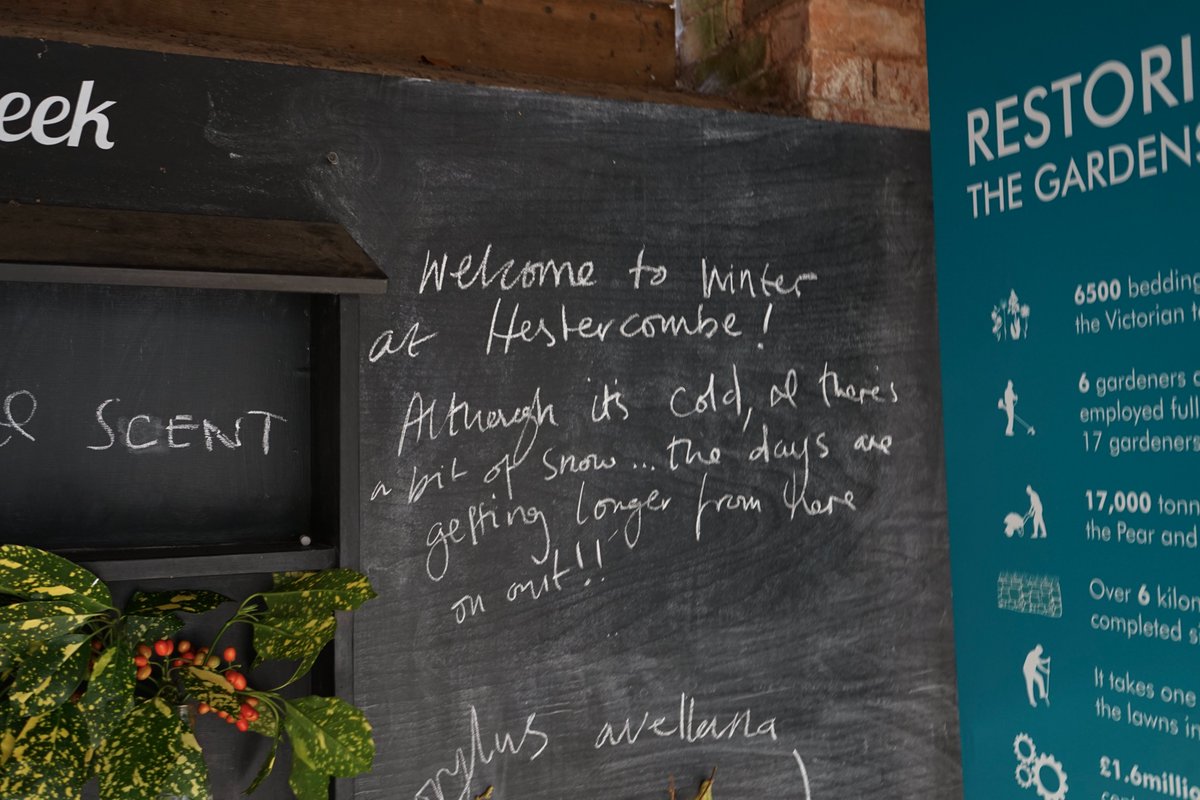 eek
SCENT
Welcome to Winter
at Hestercombe!
Although it's cold, & there's
a bit of snow... the days are
getting longer from here
on out!!
orylus avellana
)
RESTORI
THE GARDENS
6500 bedding
the Victorian te
6 gardeners a
employed full
17 gardeners
17,000 tonn
the Pear and
Over 6 kilom
completed si
It takes one
the lawns in
£1.6millio